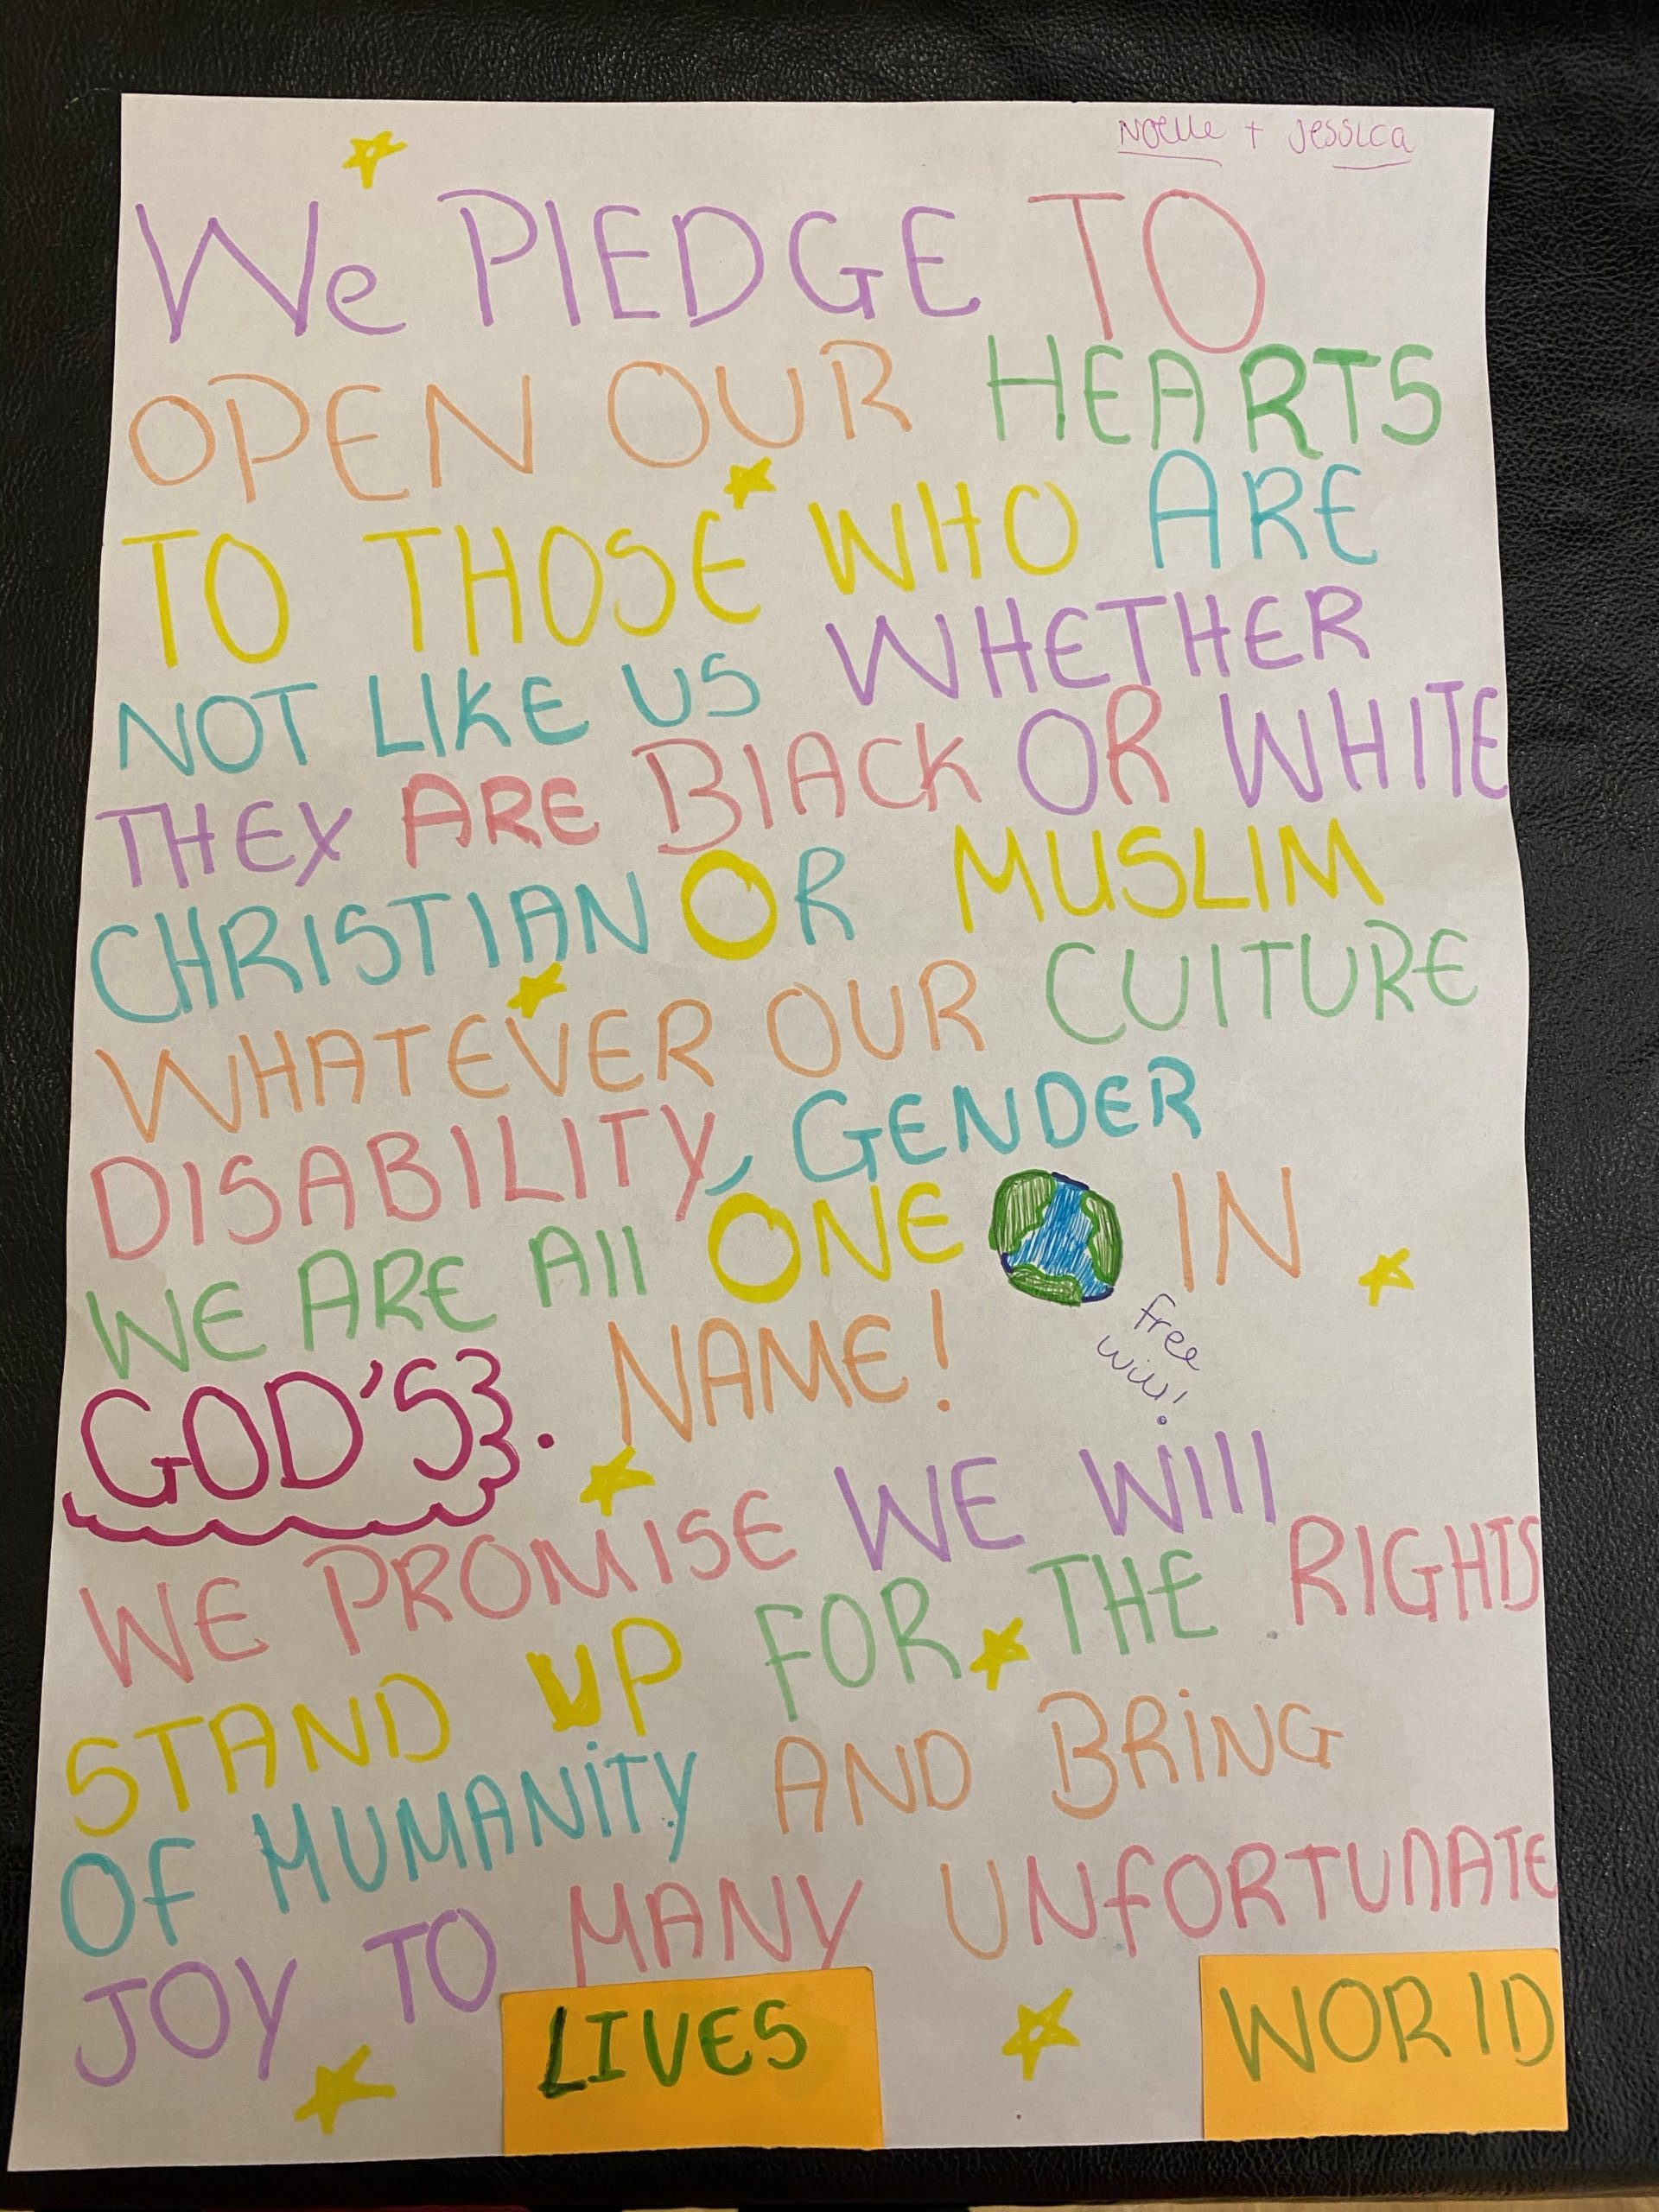 Noelle + Jessica
We PlEDGE TO
OPEN OUR HEARTS
TO THOSE WHO ARE
NOT LIKE US WHETHER
THEY ARE BlACK OR WHITE
CHRISTIAN OR MUSLIM
WHATEVER OUR CUlTURE
DISABILITY, GENDER
WE ARE All ONE IN
free
will!
GOD'S. NAME!
WE PROMISE WE Will
STAND UP FOR THE RIGHTS
OF HUMANiTY AND BRiNG
JOY TO MANY UNfORTUNATE
LIVES WORlD